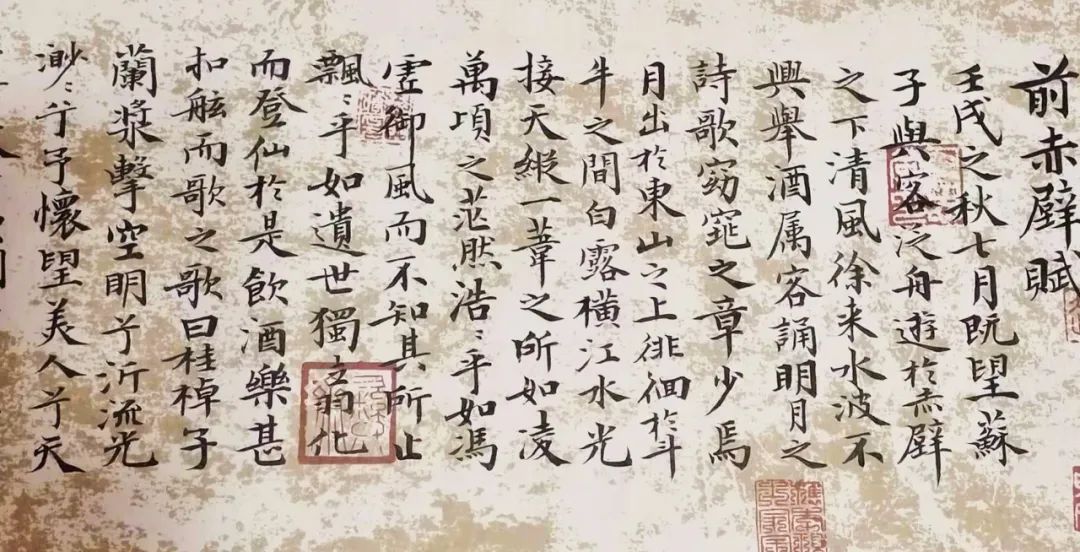 前赤壁賦
壬戌之秋七月既望蘇
子與客泛舟遊於赤壁
之下清風徐来水波不
興舉酒属客誦明月之
詩歌窈窕之章少焉
月出於東山之上徘徊於斗
牛之間白露橫江水光
接天縱一葦之所如凌
萬頃之茫然浩〻乎如馮
虛御風而不知其所止
飄〻乎如遺世獨立羽化
而登仙於是飲酒樂甚
扣舷而歌之歌曰桂棹子
蘭漿擊空明兮沂流光
渺〻兮予懷望美人兮天